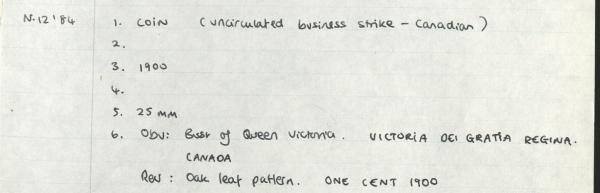 N.12'84 1. COIN (uncirculated business strike - Canadian)
2.
3. 1900
4.
5. 25 MM
6. Obv: Bust of Queen Victoria. VICTORIA DEI GRATIA REGINA.
CANADA
Rev: Oak leaf pattern. ONE CENT 1900